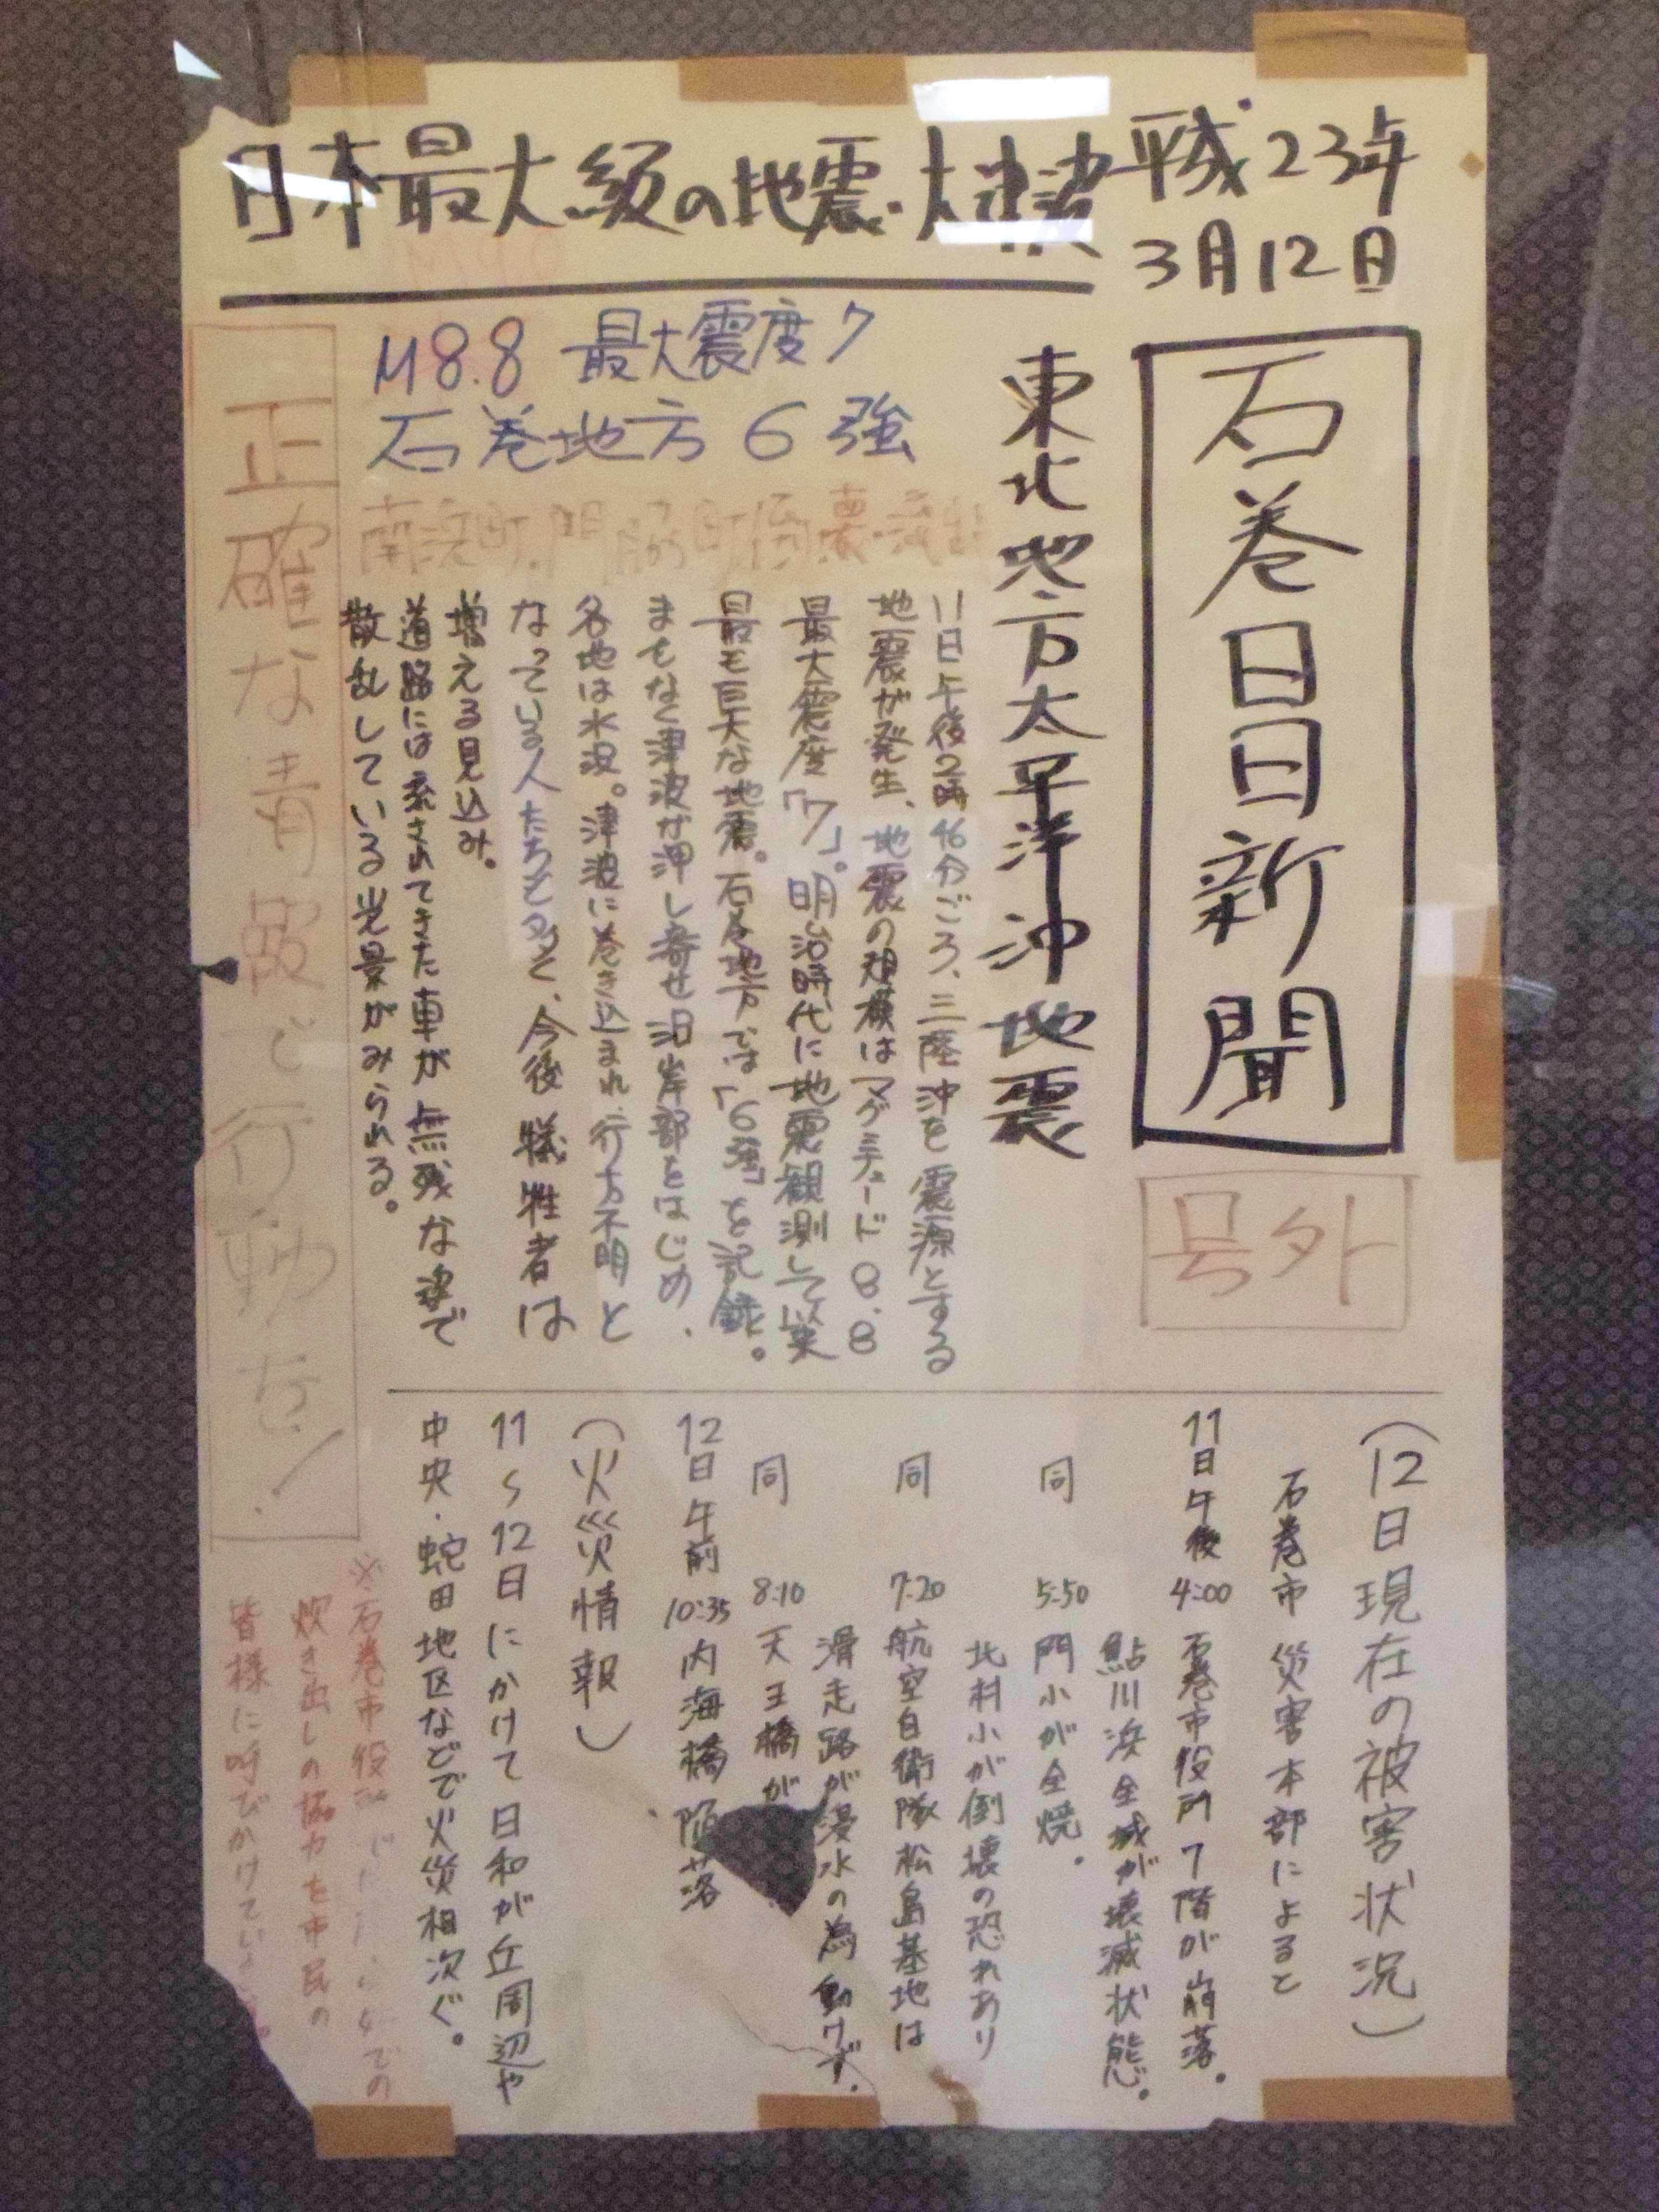 日本最大級の地震・大津波
平成23年
3月12日
石巻日日新聞
号外
東北地方太平洋沖地震
M8.8 最大震度7
石巻地方 6強
南浜町、門脇町倒壊・流出
11日午後2時46分ごろ、三陸沖を震源とする
地震が発生、地震の規模はマグニチュード8.8
最大震度「7」。明治時代に地震観測して以来
最も巨大な地震。石巻地方では「6強」を記録。
まもなく津波が押し寄せ沿岸部をはじめ、
各地は水没。津波に巻き込まれ、行方不明と
なっている人たちも多く、今後犠牲者は
増える見込み。
道路には流されてきた車が無残な姿で
散乱している光景がみられる。
正確な情報で行動を!
(12日現在の被害状況)
石巻市災害本部によると
11日午後 4:00 石巻市役所7階が崩落。
鮎川浜全域が壊滅状態。
同 5:50 門小が全焼。
北村小が倒壊の恐れあり
同 7:20 航空自衛隊松島基地は
滑走路が浸水の為動けず.
同 8:10 天王橋が
12日午前 10:35 内海橋陥落
(火災情報)
11〜12日にかけて日和が丘周辺や
中央・蛇田地区などで火災相次ぐ。
※石巻市役 での
炊き出しの協力を市民の
皆様に呼びかけてい